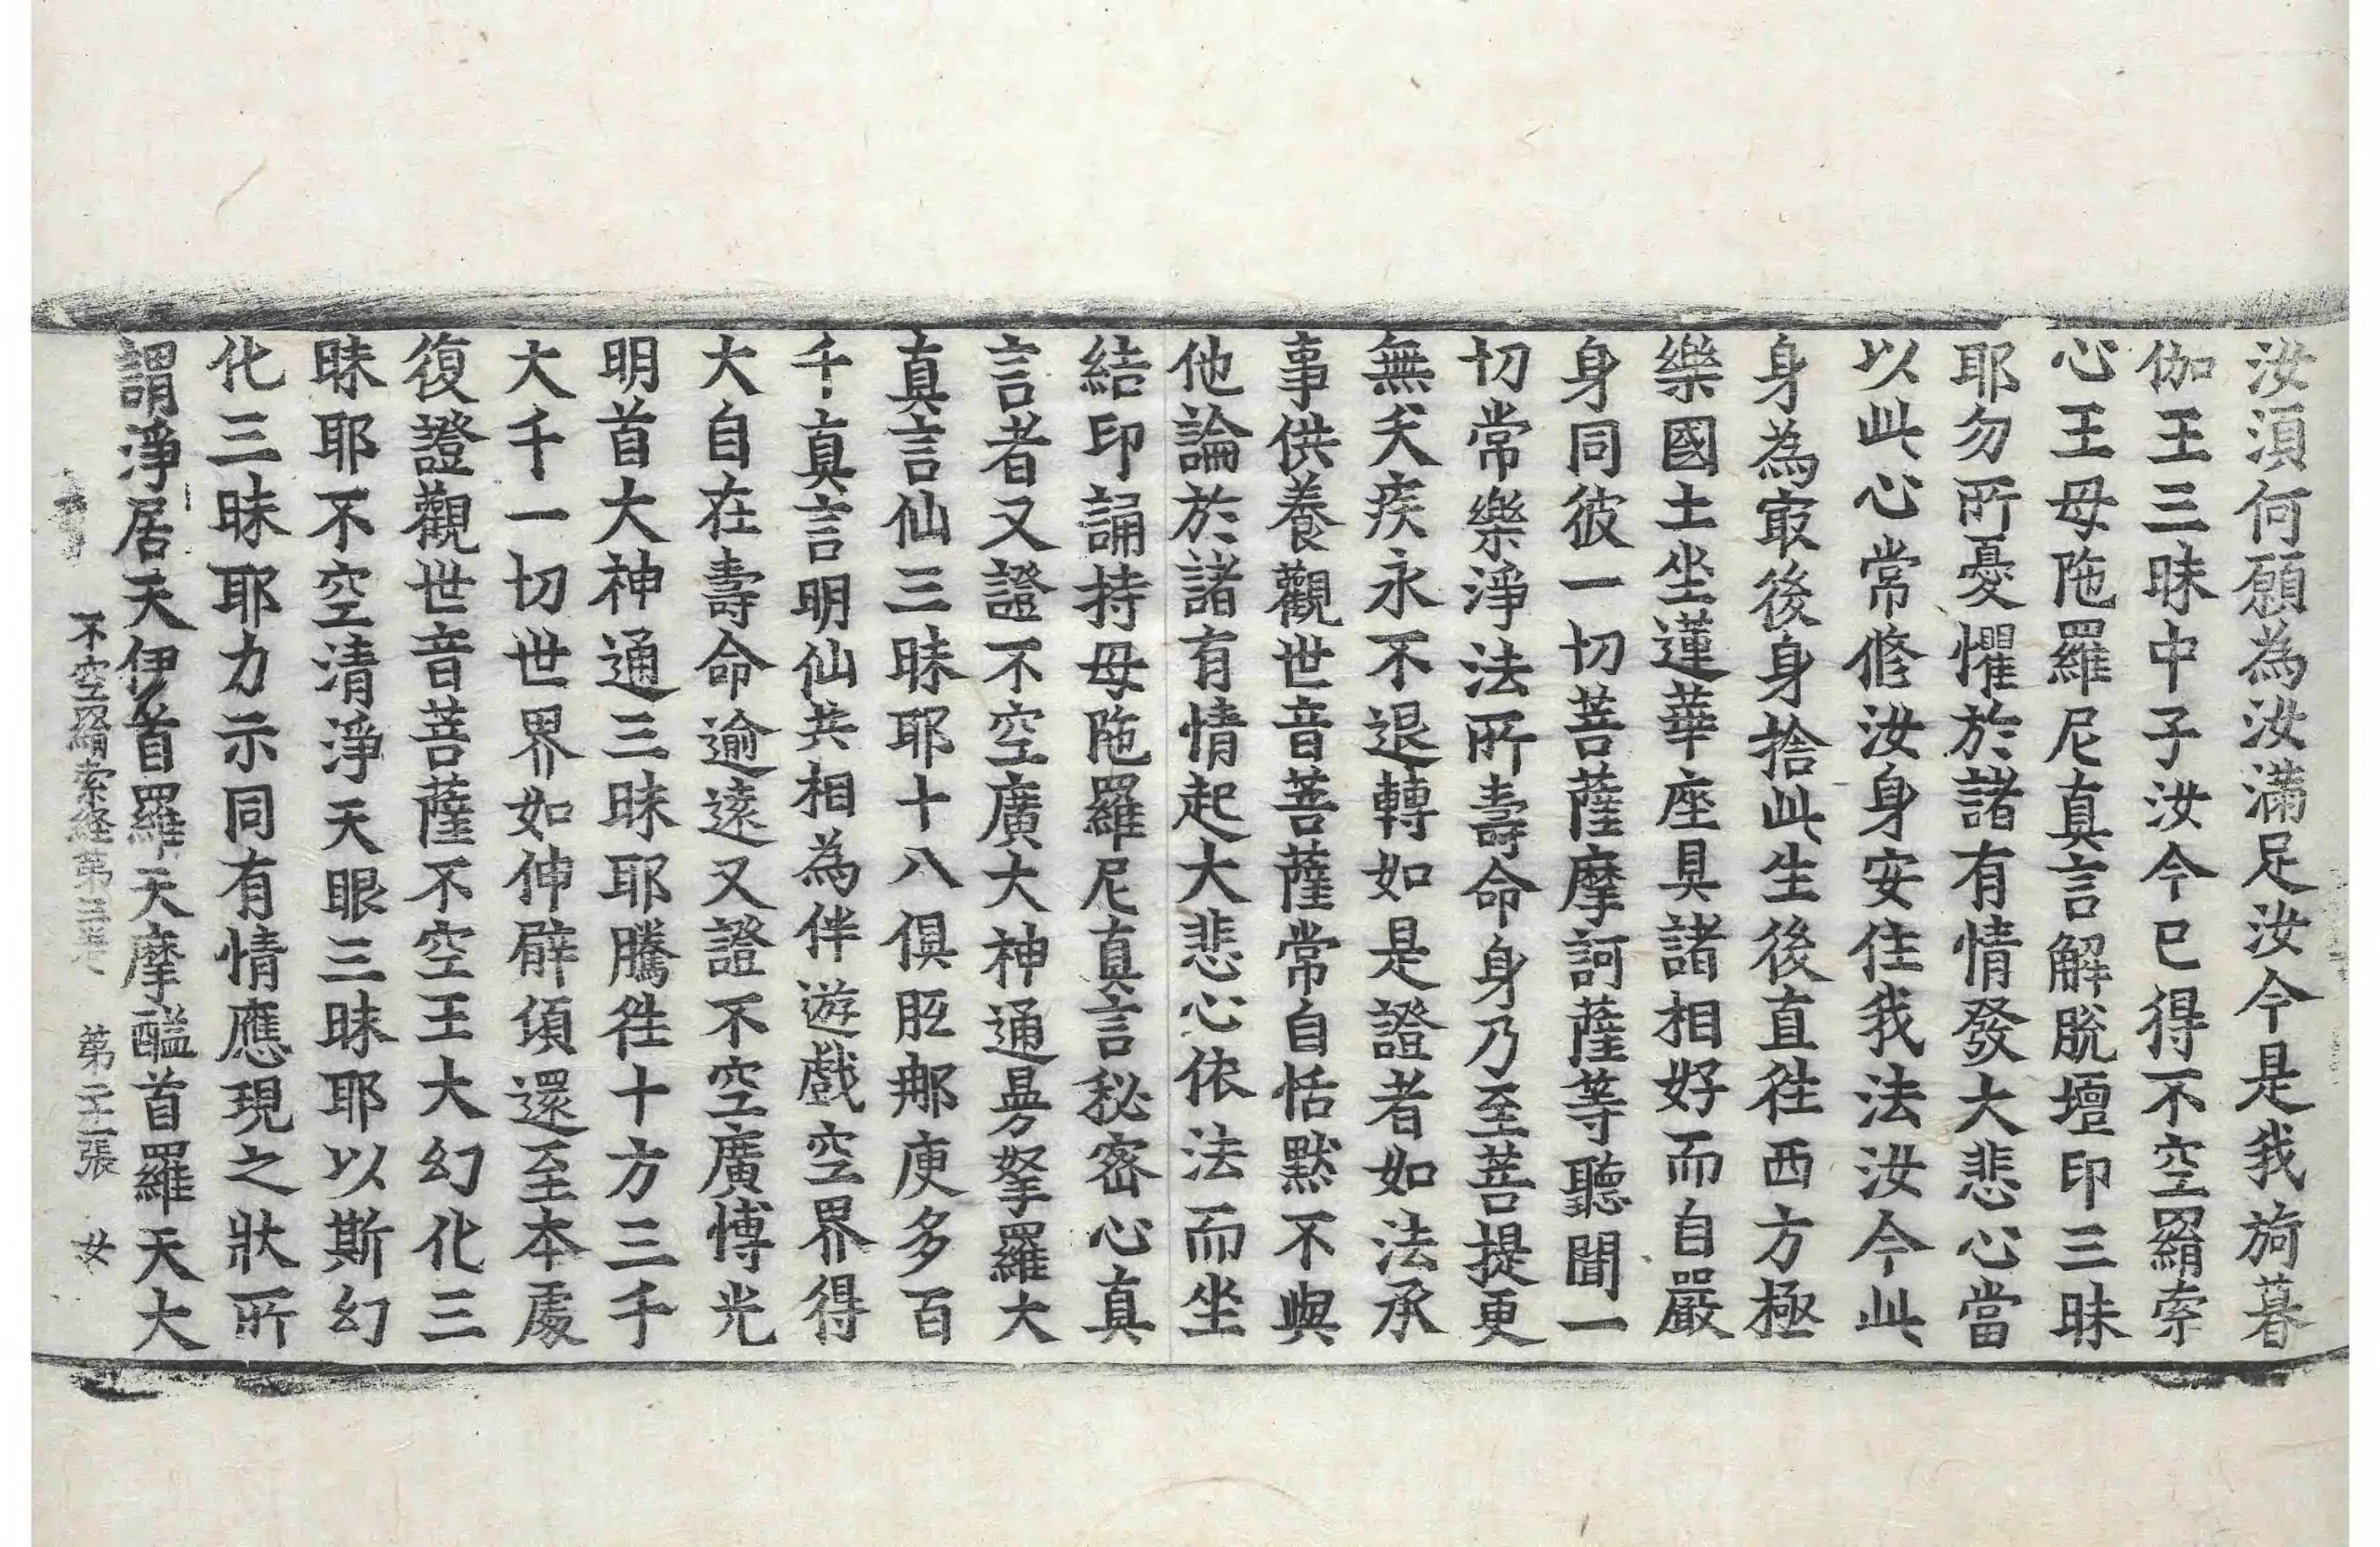 汝湏何願為汝滿足汝今是我旖暮
伽王三昧中子汝今已得不空羂索
心王母陁羅尼真言解脫壇印三昧
耶勿所憂懼於諸有情發大悲心當
以此心常修汝身安住我法汝今此
身為㝡後身捨此生後直徃西方極
樂國土坐蓮華座具諸相好而自嚴
身同彼一切菩薩摩訶薩等聽聞一
切常樂淨法所壽命身乃至菩提更
無夭疾永不退轉如是證者如法承
事供養觀世音菩薩常自恬默不與
他論於諸有情起大悲心依法而坐
結印誦持母陁羅尼真言秘密心真
言者又證不空廣大神通曼拏羅大
真言仙三昧耶十八俱胝那庾多百
千真言明仙共相為伴遊戲空界得
大自在壽命逾遠又證不空廣博光
明首大神通三昧耶騰徃十方三千
大千一切世界如伸臂傾還至本處
復證觀世音菩薩不空王大幻化三
昧耶不空清淨天眼三昧耶以斯幻
化三昧耶力示同有情應現之狀所
謂淨居天伊首羅天摩醯首羅天大
不空羂索經第三卷 第二十張 女